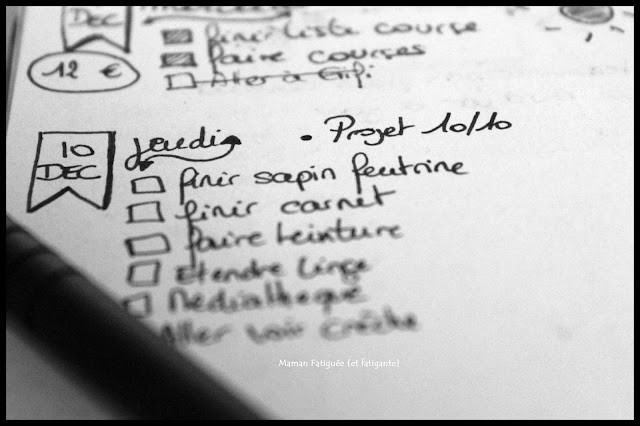 DEC
finir liste course
faire courses
12 €
Aller à Gifi
10 DEC
jeudi
• Projet 10/10
finir sapin feutrine
finir carnet
faire teinture
Etendre linge
Médiathèque
Aller voir crèche
Maman Fatiguée (et fatigante)